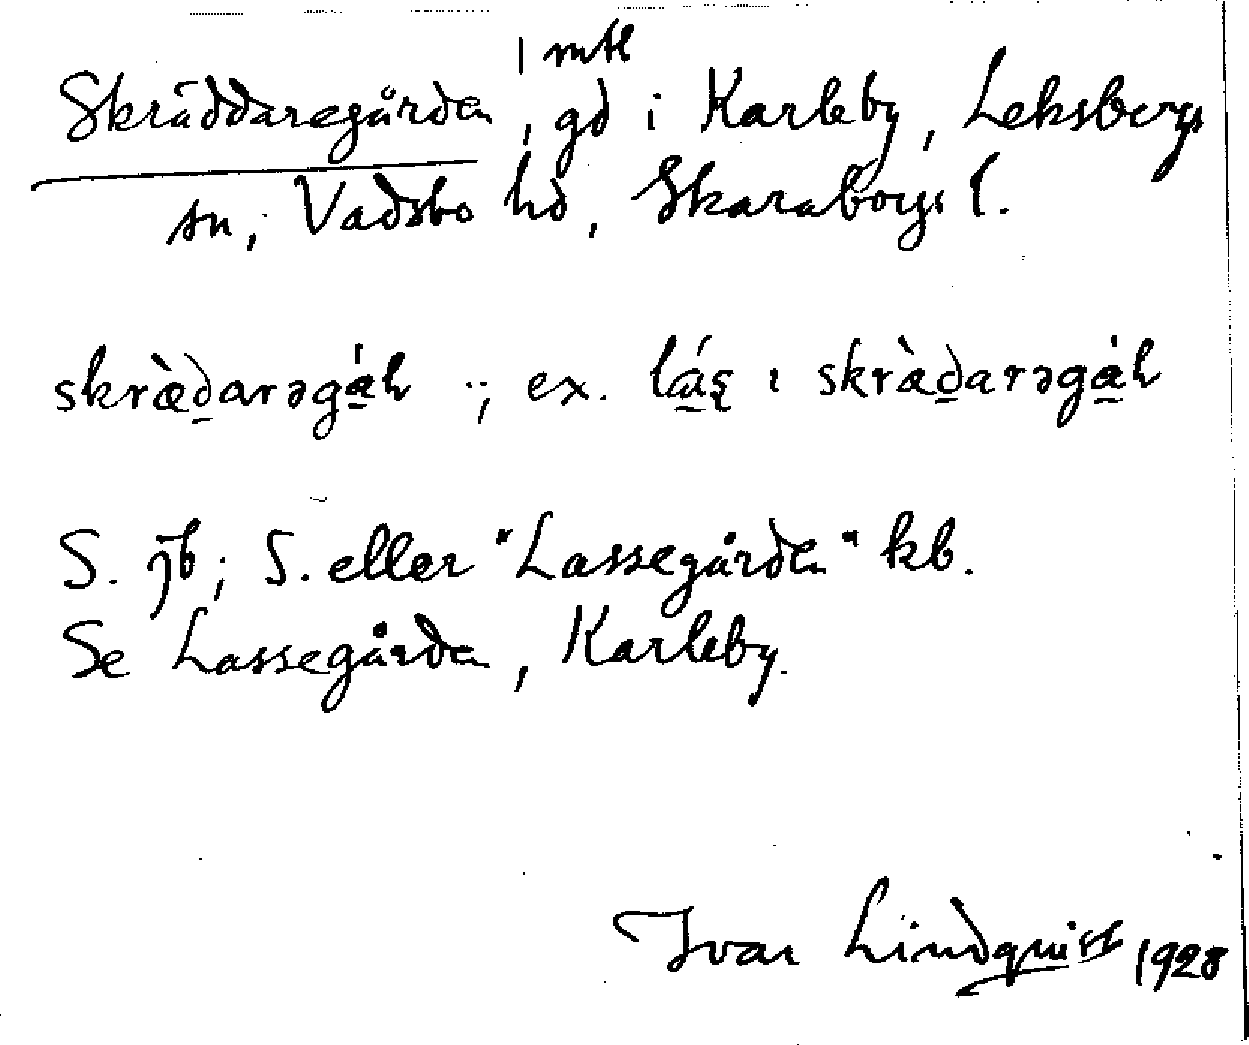 1 mtl
Skräddaregården, gd i Karleby, Leksbergs
sn, Vadsbo hd, Skaraborgs l.
skræ̀d̠arəgá̠h ·; ex. lá̠s ı skræ̀d̠arəgá̠h
S. jb; S. eller "Lassegården" kb.
Se Lassegården, Karleby.
Ivar Lindquist 1928